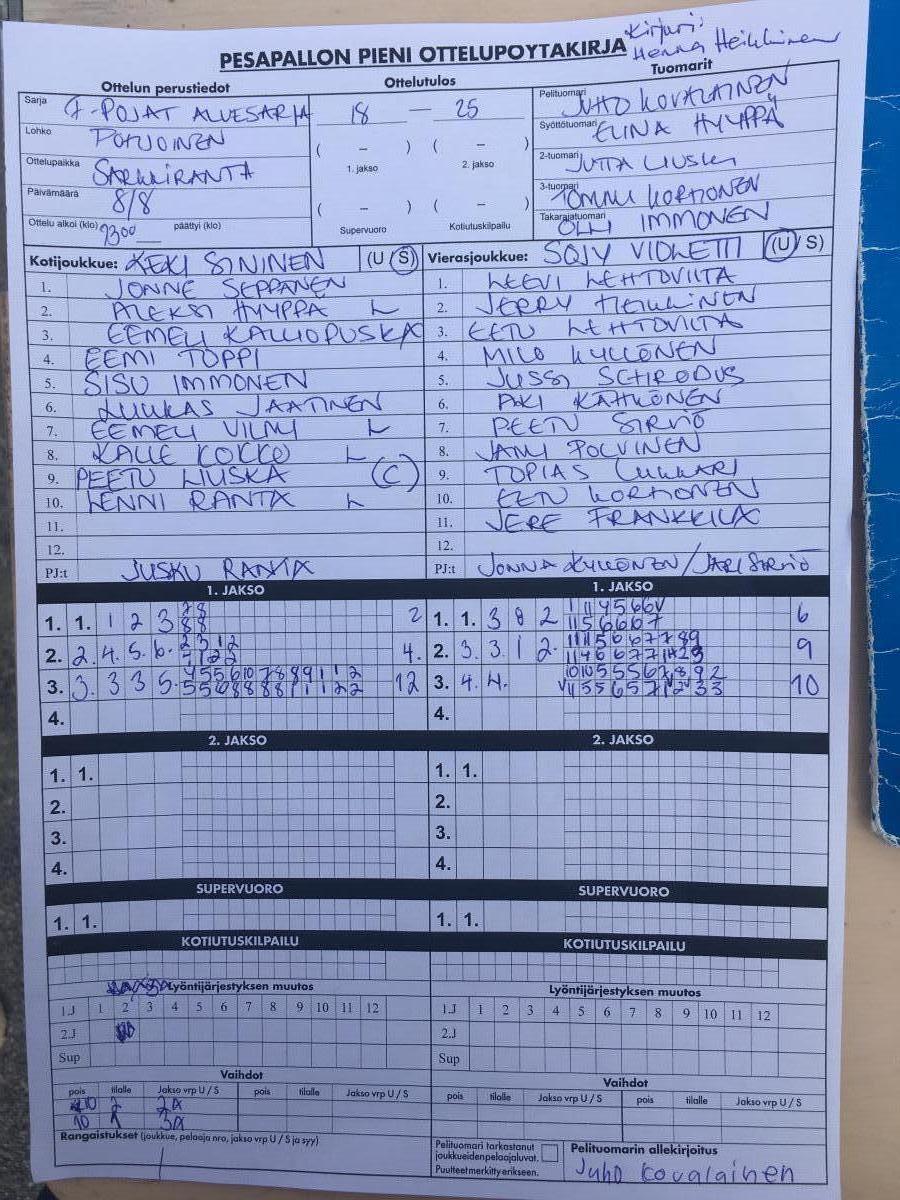 Kirjuri:
Henna Heikkinen
PESAPALLON PIENI OTTELUPOYTAKIRJA
Ottelun perustiedot
Ottelutulos
Tuomarit
Sarja F-POJAT ALUESARJA
18 — 25
Pelituomari JUHO KOVALAINEN
Lohko POHJOINEN
Syöttötuomari ELINA HYMPPÄ
( – ) ( – )
1. jakso 2. jakso
Ottelupaikka SARKKIRANTA
2-tuomari JUTTA LIUSKA
Päivämäärä 8/8
3-tuomari TOMMI KORHONEN
( – ) ( – )
Supervuoro Kotiutuskilpailu
Ottelu alkoi (klo) 1300 päättyi (klo)
Takarajatuomari OLLI IMMONEN
Kotijoukkue: KEKI SININEN (U S)
Vierasjoukkue: SOJY VIOLETTI (U/S)
1. JONNE SEPPÄNEN
1. LEEVI LEHTOVIITA
2. ALEKSI HYMPPÄ L
2. JERRY HEIKKINEN
3. EEMELI KALLIOPUSKA
3. EETU LEHTOVIITA
4. EEMI TOPPI
4. MILO KYLLÖNEN
5. SISU IMMONEN
5. JUSSI SCHRODUS
6. LUUKAS JAATINEN
6. AKI KÄHKÖNEN
7. EEMELI VILMI L
7. PEETU SIRVIÖ
8. KALLE KOKKO L
8. JAMI POLVINEN
9. PEETU LIUSKA (C)
9. TOPIAS LUKKARI
10. LENNI RANTA L
10. EETU KORHONEN
11.
11. JERE FRANKKILA
12.
12.
PJ:t JUSKU RANTA
PJ:t JONNA KYLLÖNEN/JARI SIRVIÖ
1. JAKSO
1. JAKSO
1. 1. 1 2 3 2
1. 1. 3 8 2 6
2. 2. 4. 5. 6. 4.
2. 3. 3. 1 2. 9
3. 3. 3 3 5. 12
3. 4. 4. 10
4.
4.
2. JAKSO
2. JAKSO
1. 1.
1. 1.
2.
2.
3.
3.
4.
4.
SUPERVUORO
SUPERVUORO
1. 1.
1. 1.
KOTIUTUSKILPAILU
KOTIUTUSKILPAILU
Lyöntijärjestyksen muutos
Lyöntijärjestyksen muutos
1.J 1 2 3 4 5 6 7 8 9 10 11 12
1.J 1 2 3 4 5 6 7 8 9 10 11 12
2.J
2.J
Sup
Sup
Vaihdot
Vaihdot
pois tilalle Jakso vrp U / S pois tilalle Jakso vrp U / S
pois tilalle Jakso vrp U / S pois tilalle Jakso vrp U / S
10 2 2A
10 3A
Rangaistukset (joukkue, pelaaja nro, jakso vrp U / S ja syy)
Pelituomari tarkastanut
joukkueiden pelaajaluvat.
Puutteet merkitty erikseen.
Pelituomarin allekirjoitus
Juho Kovalainen